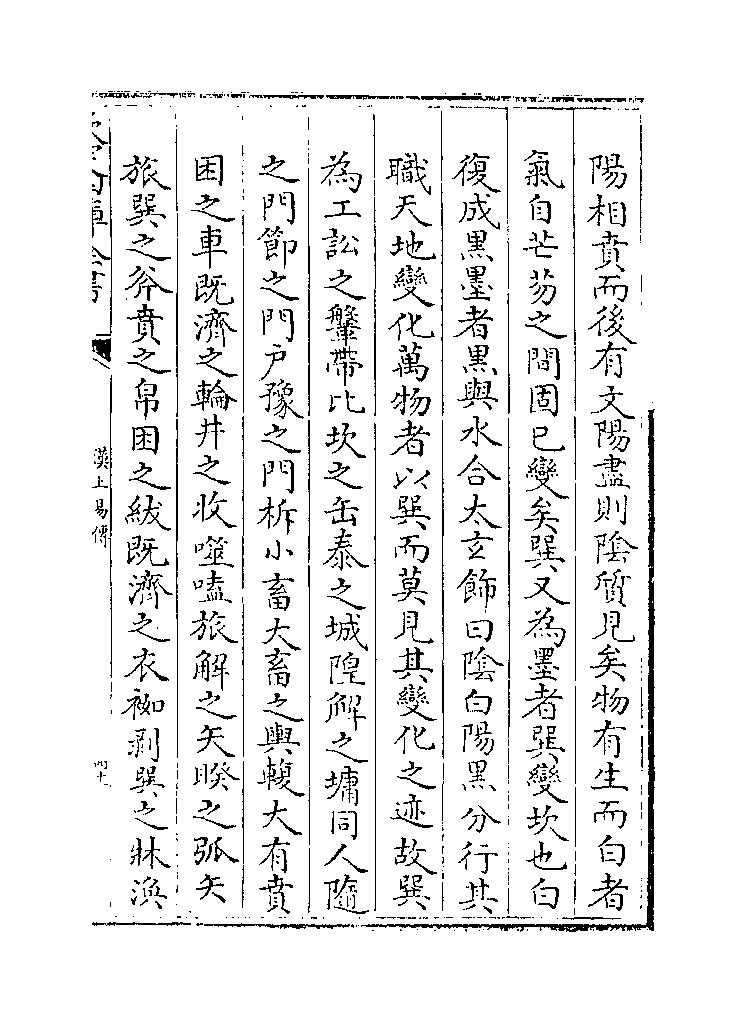 陽相賁而後有文陽盡則陰質見矣物有生而白者
氣自芒芴之間固已變矣巽又為墨者巽變坎也白
復成黑墨者黑與水合太玄飾曰陰白陽黑分行其
職天地變化萬物者以巽而莫見其變化之迹故巽
為工訟之鞶帶比坎之缶泰之城隍解之墉同人隨
之門節之門戶豫之門柝小畜大畜之輿輹大有賁
困之車既濟之輪井之收噬嗑旅解之矢睽之弧矢
旅巽之斧賁之帛困之紱既濟之衣袽剥巽之牀渙
漢上易傳